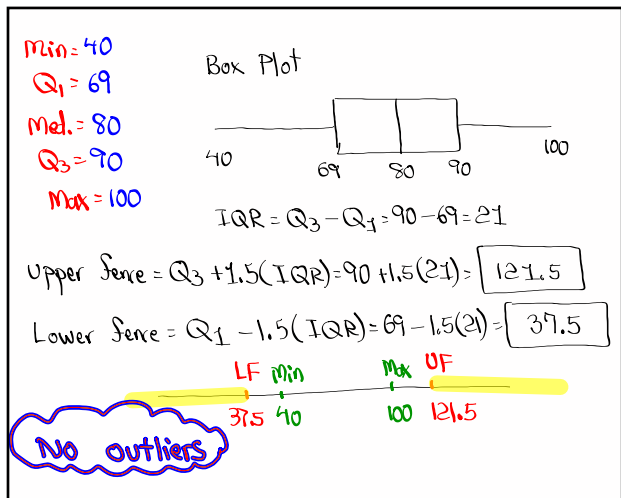 Min= 40
Q1= 69
Med.= 80
Q3= 90
Max = 100
Box Plot
40
69
80
90
100
IQR = Q3 - Q1 = 90 - 69 = 21
Upper fence = Q3 + 1.5(IQR) = 90 + 1.5(21) = 121.5
Lower fence = Q1 - 1.5(IQR) = 69 - 1.5(21) = 37.5
LF Min Max UF
37.5 40 100 121.5
No outliers